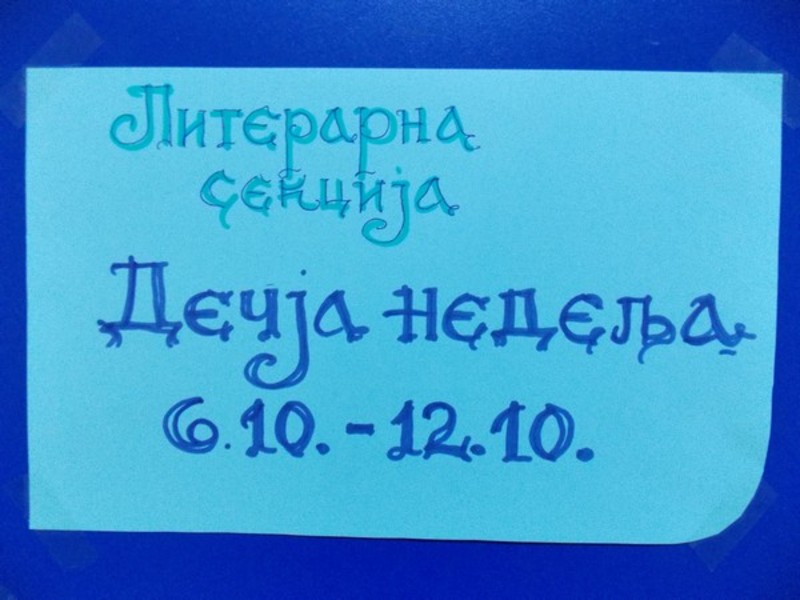 Литерарна
секција
Дечја недеља
6.10. - 12.10.